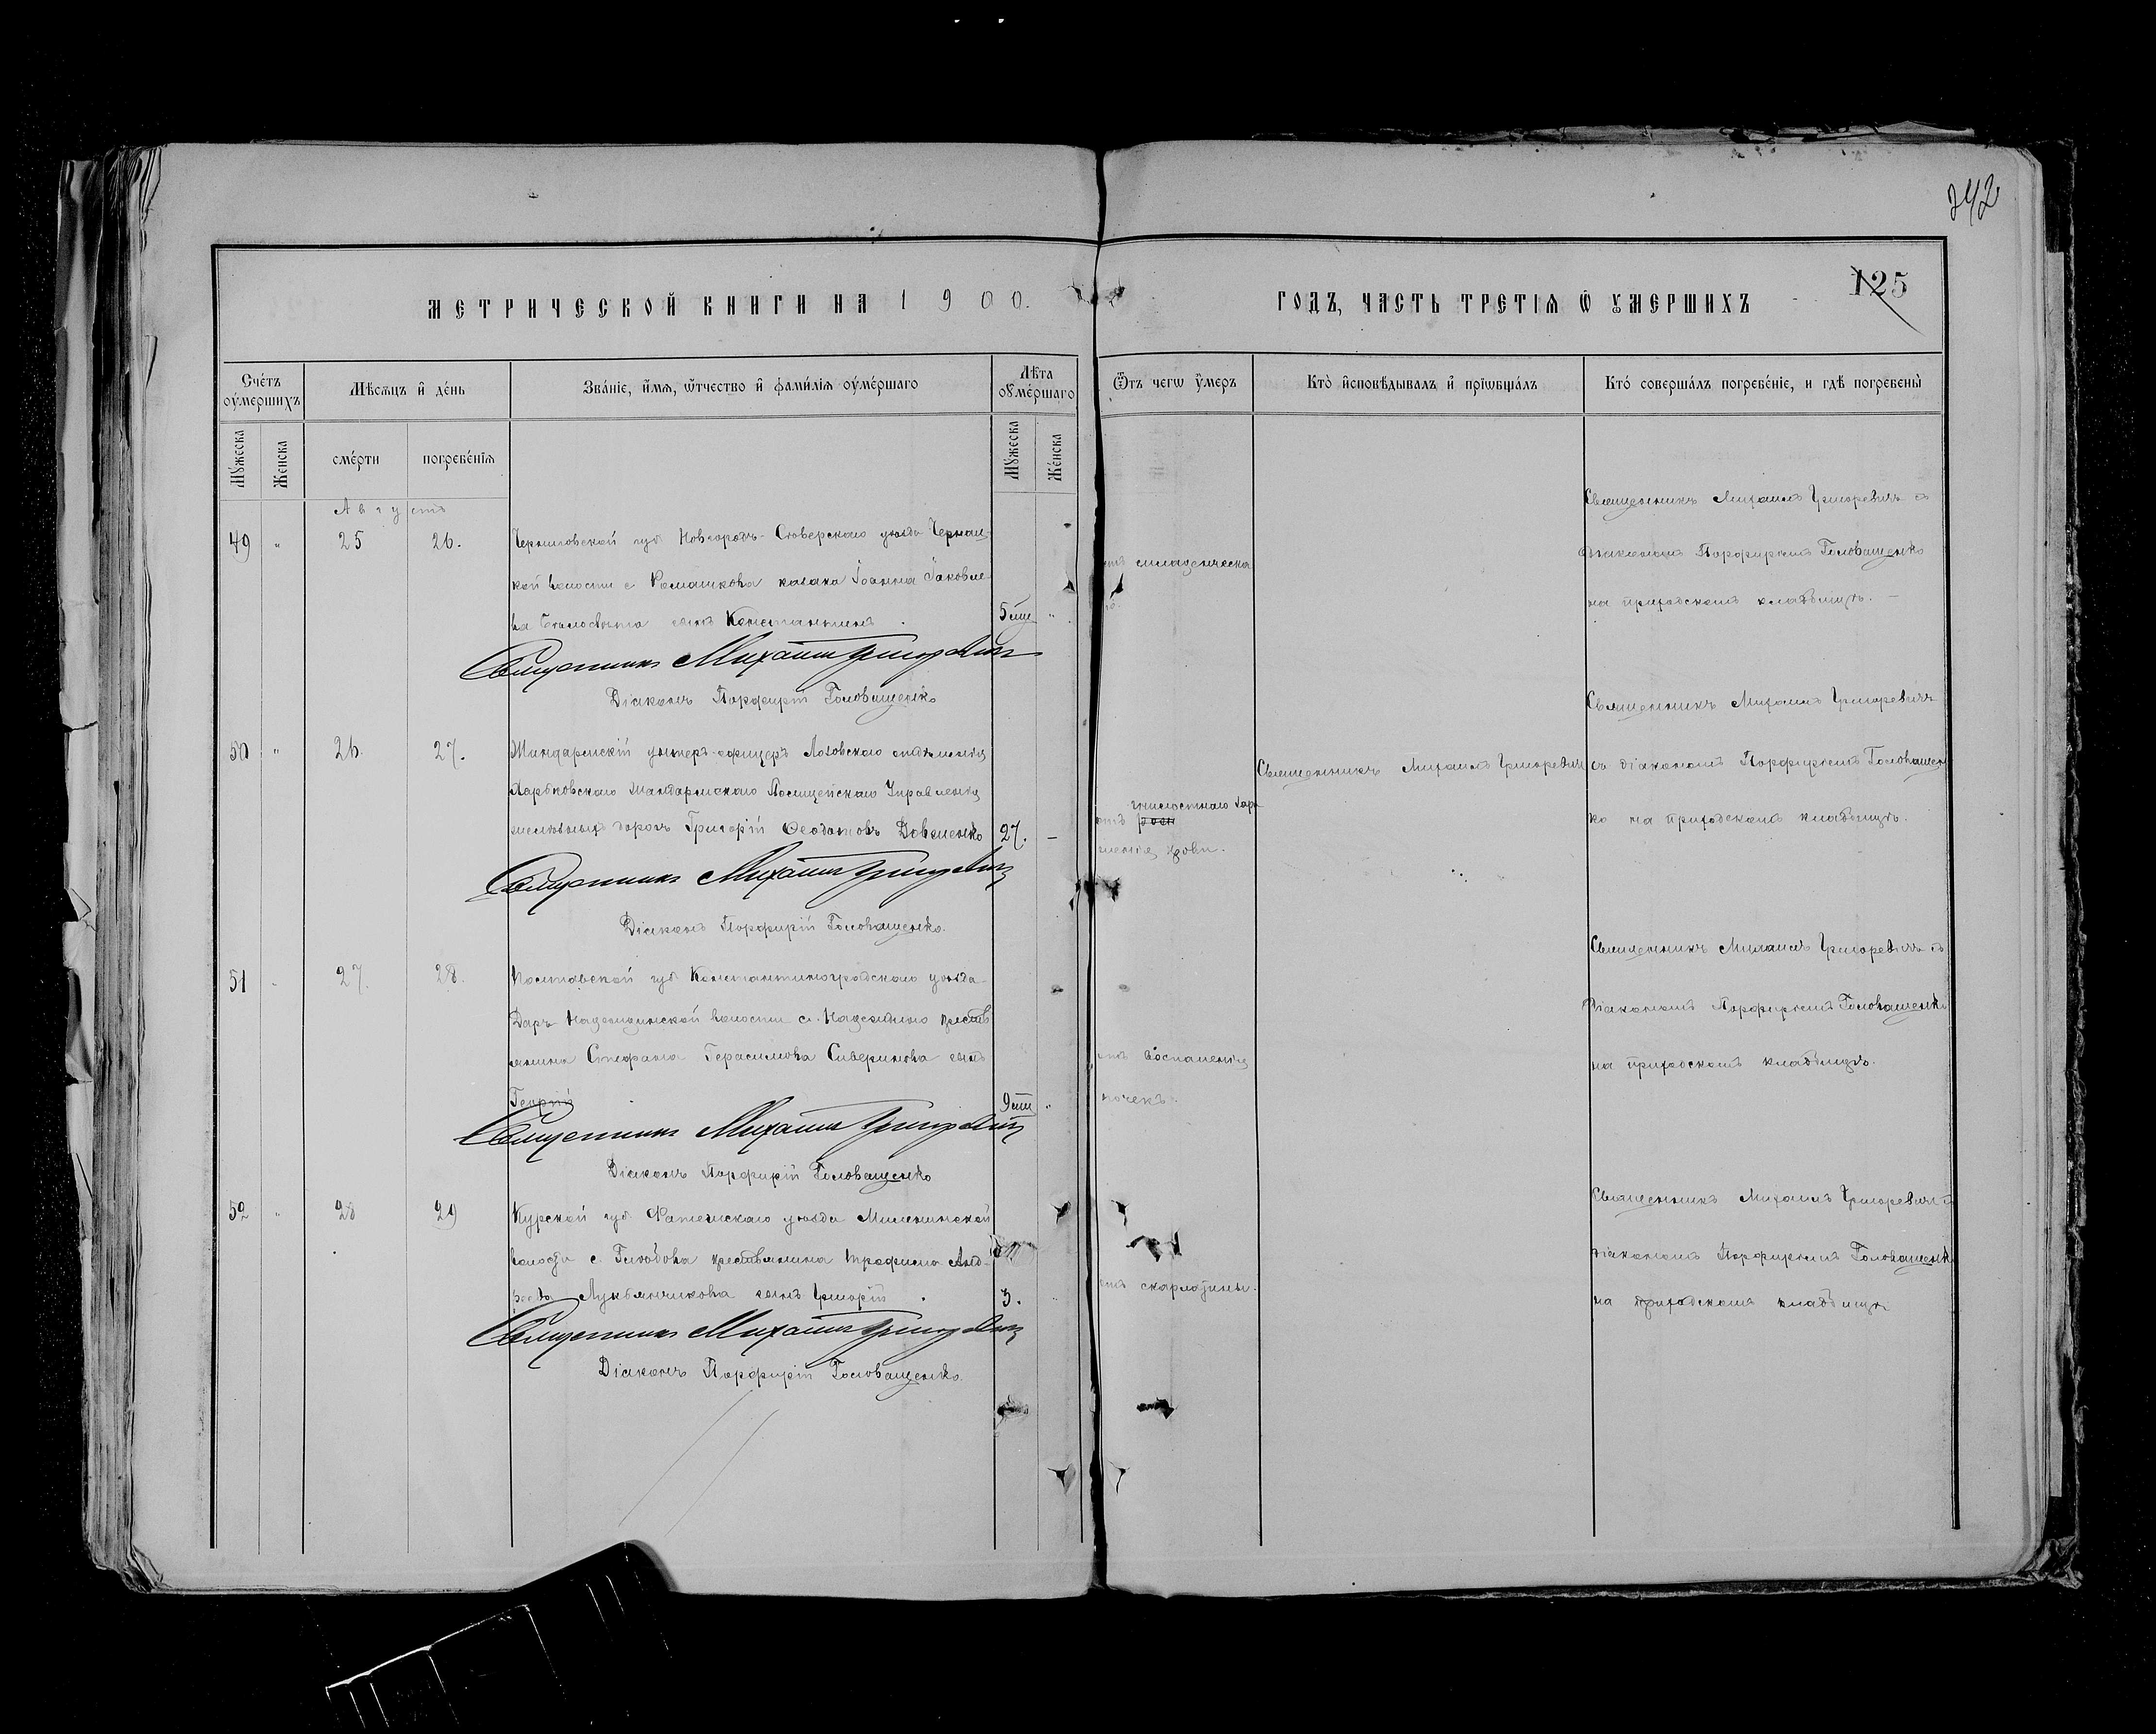 242
125
МЕТРИЧЕСКОЙ КНИГИ НА 1900.
ГОДЪ, ЧАСТЬ ТРЕТІЯ Ѿ УМЕРШИХЪ
Счетъ оумершихъ
Мѣсяцъ и день
Званіе, имя, ѿтчество и фамилія оумершаго
Лѣта оумершаго
Ѿтъ чегѡ умеръ
Кто исповѣдывалъ и пріѡбщалъ
Кто совершалъ погребеніе, и гдѣ погребены
Мужеска
Женска
смерти
погребенія
Мужеска
Женска
Августъ
49 " 25 26.
Черниговской губ Новгородъ-Сѣверскаго уѣзда
кой волости с Ромашкова казака Іоанна Іаковле-
ва сынъ Константинъ. "
Священникъ Михаилъ Григоревичъ
Діаконъ Порфирій Головащенко
отъ младенческа
Священникъ Михаилъ Григоревичъ съ
діакономъ Порфиріемъ Головащенко
на приходскомъ кладбищѣ.
50 " 26. 27.
Жандармскій унтеръ-офицеръ Лозовскаго отдѣленія
Харьковскаго Жандармскаго Полицейскаго Управленія
желѣзныхъ дорогъ Григорій Ѳеодотовъ Довженко 27. –
Священникъ Михаилъ Григоревичъ
Діаконъ Порфирій Головащенко.
гнилостнаго зара
отъ
женія крови.
Священникъ Михаилъ Григоревичъ
Священникъ Михаилъ Григоревичъ
съ діакономъ Порфиріемъ Головащен
ко на приходскомъ кладбищѣ.
51 " 27. 28.
Полтавской губ Константиноградскаго уѣзда
Даръ Надеждинской волости с. Надеждино крестья
янина Стефана Герасимова Сиверинова сынъ
Георгій "
Священникъ Михаилъ Григоревичъ
Діаконъ Порфирій Головащенко
отъ воспаленія
почекъ.
Священникъ Михаилъ Григоревичъ съ
Діакономъ Порфиріемъ Головащенко
на приходскомъ кладбищѣ.
52 " 28 29
Курской губ Фатежскаго уѣзда Миленинской
волости с. крестьянина Трофима Анд-
реева Лукьянчикова сынъ Григорій. 3.
Священникъ Михаилъ Григоревичъ
Діаконъ Порфирій Головащенко.
отъ скарлатины.
Священникъ Михаилъ Григоревичъ съ
діакономъ Порфиріемъ Головащенк
на приходскомъ кладбищѣ